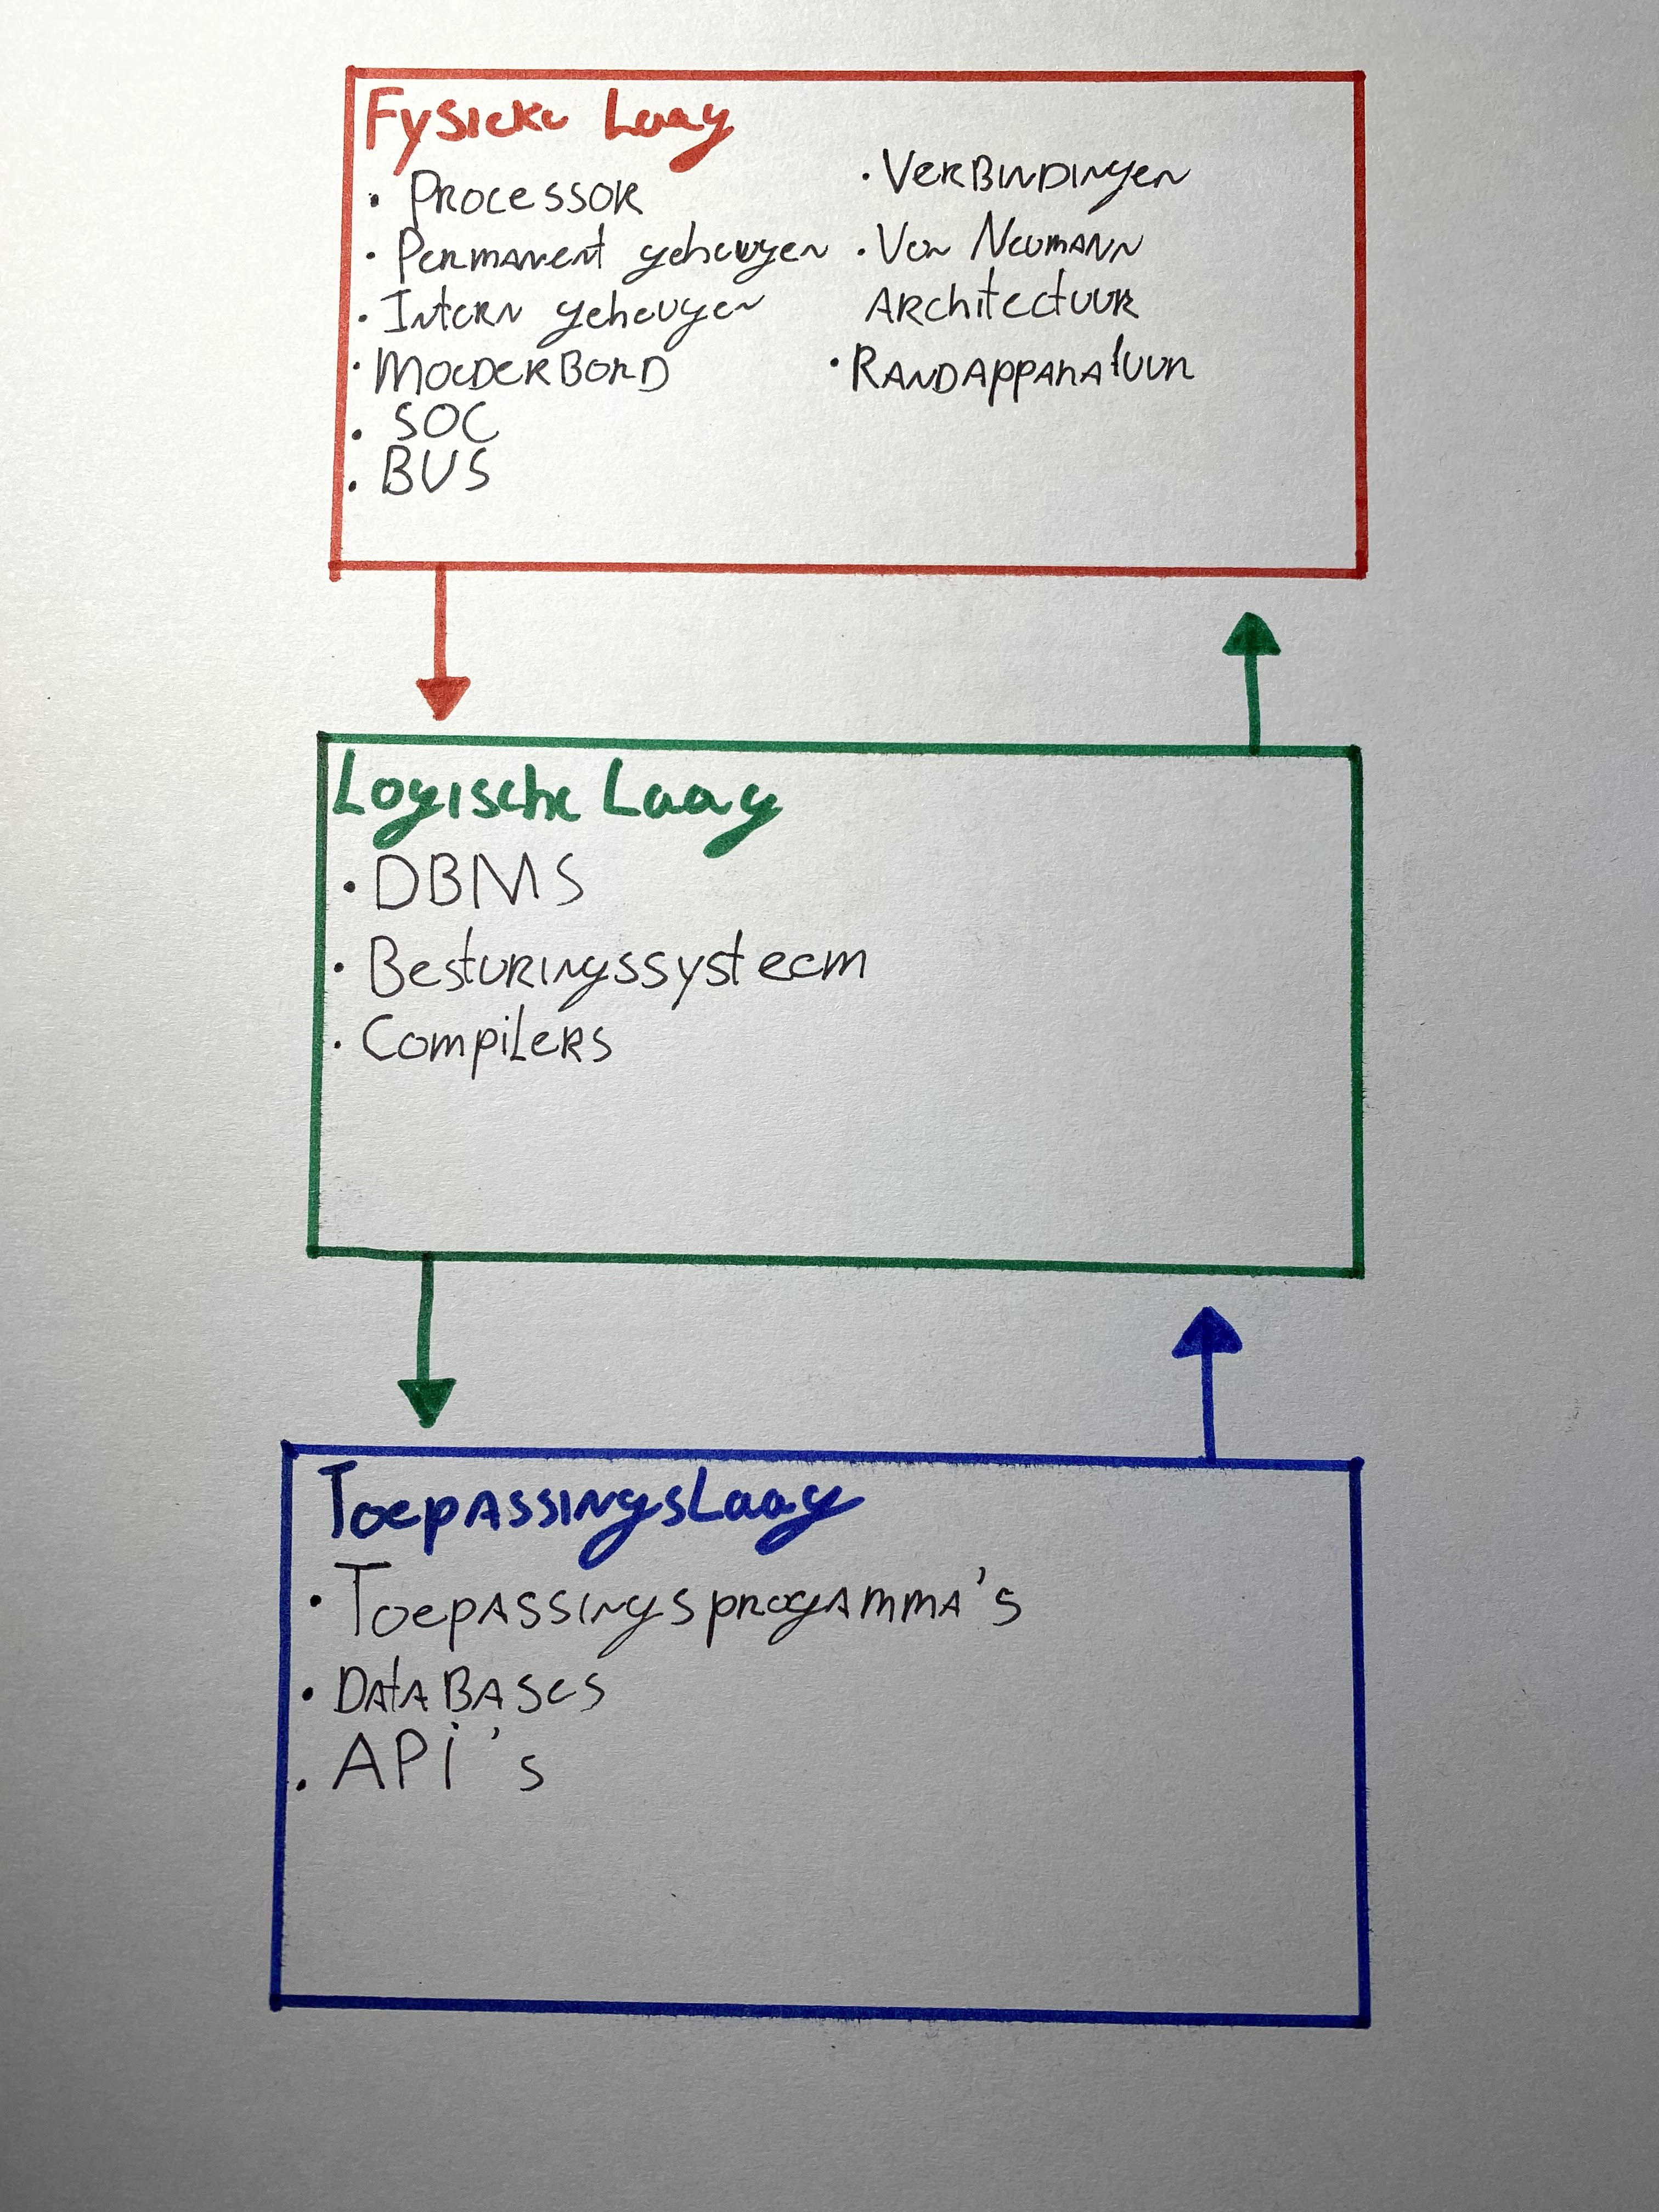 Fysieke Laag
• Processor
• Permanent geheugen
• Intern geheugen
• Moederbord
• SOC
• BUS
• Verbindingen
• Von Neumann
Architectuur
• Randapparatuur
Logische Laag
• DBMS
• Besturingssysteem
• Compilers
Toepassingslaag
• Toepassingsprogamma's
• Databases
• API's